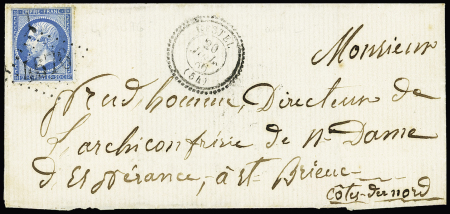 EMPIRE FRANC
20
(54)
Monsieur
Prud'homme, Directeur de
l'archiconfrérie de N. Dame
d'Espérance, à St Brieuc
Côtes-du-nord